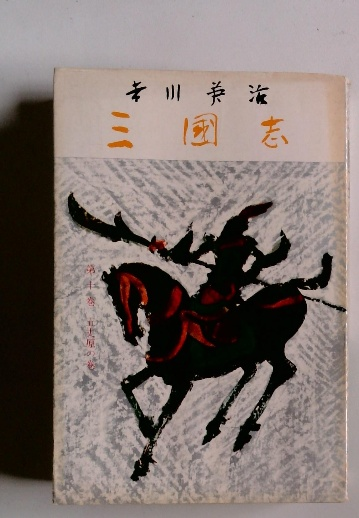 吉川英治
三國志
第十巻 五丈原の巻